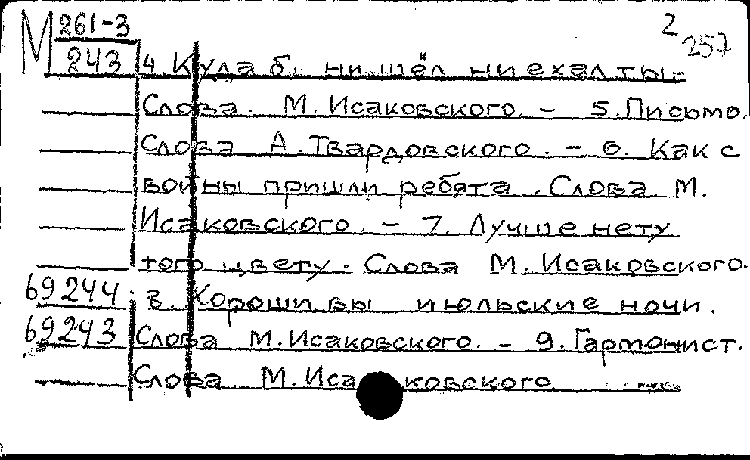 М 261-3
243
2
257
4 Куда б ни шёл ни ехал ты.-
Слова. М. Исаковского. - 5. Письмо.
Слова А. Твардовского. - 6. Как с
войны пришли ребята. Слова М.
Исаковского. - 7. Лучше нету
того цвету. Слова М. Исаковского.
69244 в. Хороши вы июльские ночи.
69243 Слова М. Исаковского. - 9. Гармонист.
Слова М. Исаковского